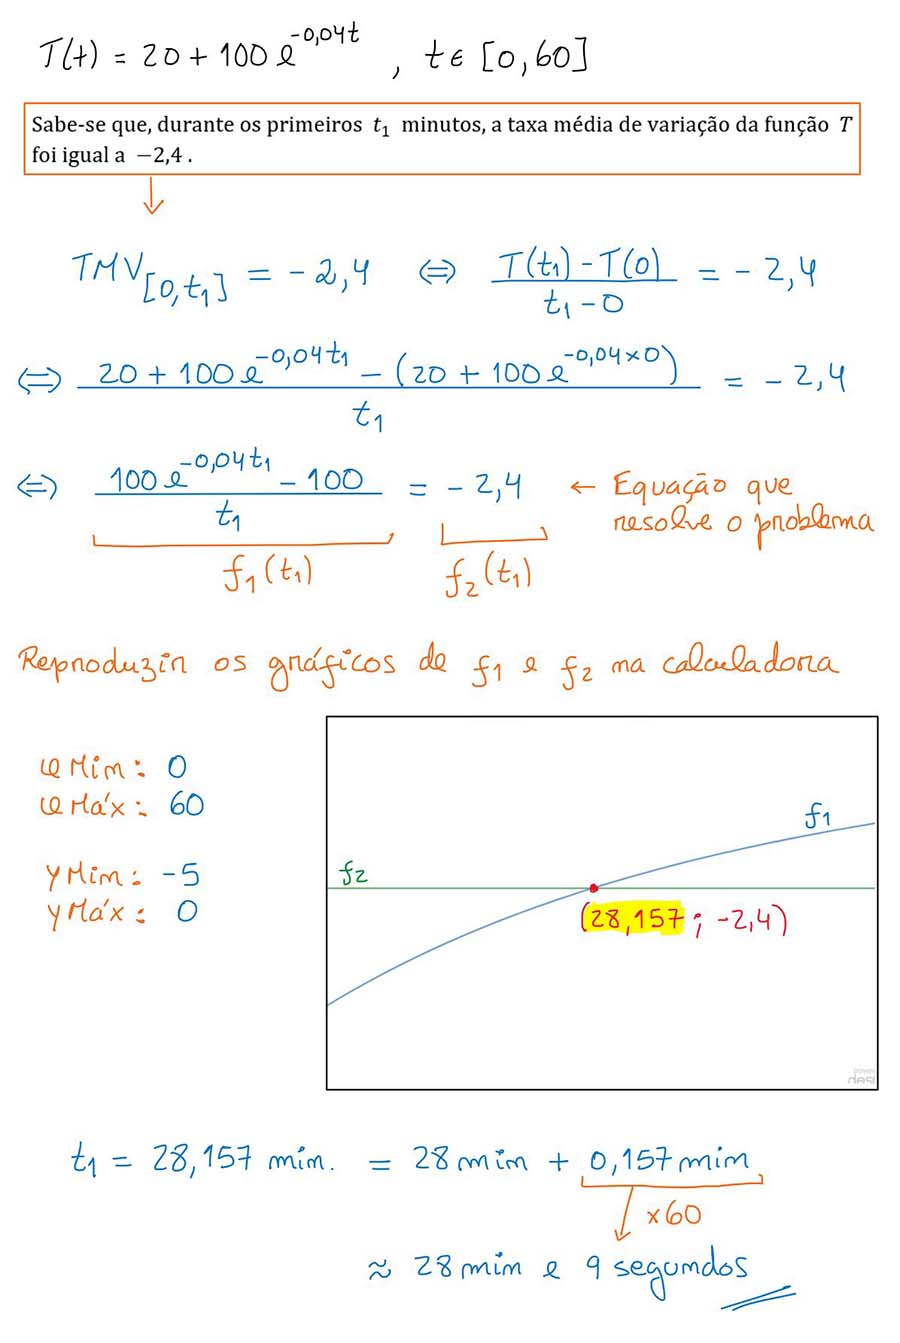 T(t) = 20 + 100 e^{-0,04t} , t ∈ [0,60]
Sabe-se que, durante os primeiros t₁ minutos, a taxa média de variação da função T
foi igual a −2,4 .
TMV_{[0,t₁]} = -2,4 ⇔ \frac{T(t₁) - T(0)}{t₁ - 0} = -2,4
⇔ \frac{20 + 100 e^{-0,04t₁} - (20 + 100 e^{-0,04×0})}{t₁} = -2,4
⇔ \frac{100 e^{-0,04t₁} - 100}{t₁} = -2,4 ← Equação que
resolve o problema
f₁(t₁) f₂(t₁)
Reproduzir os gráficos de f₁ e f₂ na calculadora
x Mín: 0
x Máx: 60
y Mín: -5
y Máx: 0
f₁
f₂
(28,157 ; -2,4)
t₁ = 28,157 min. = 28 min + 0,157 min
×60
≈ 28 min e 9 segundos